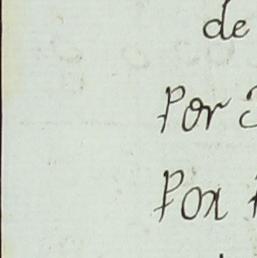 de
Por
Pon